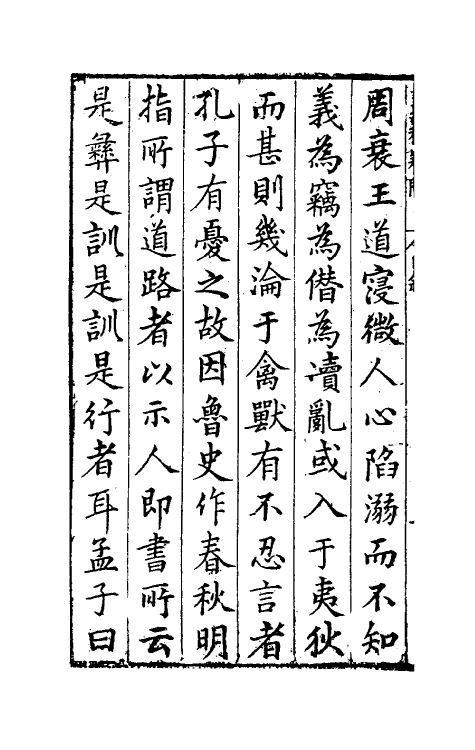 周衰王道寖微人心陷溺而不知
義為竊為僣為凟亂或入于夷狄
而甚則幾淪于禽獸有不忍言者
孔子有憂之故因魯史作春秋明
指所謂道路者以示人即書所云
是彝是訓是訓是行者耳孟子曰